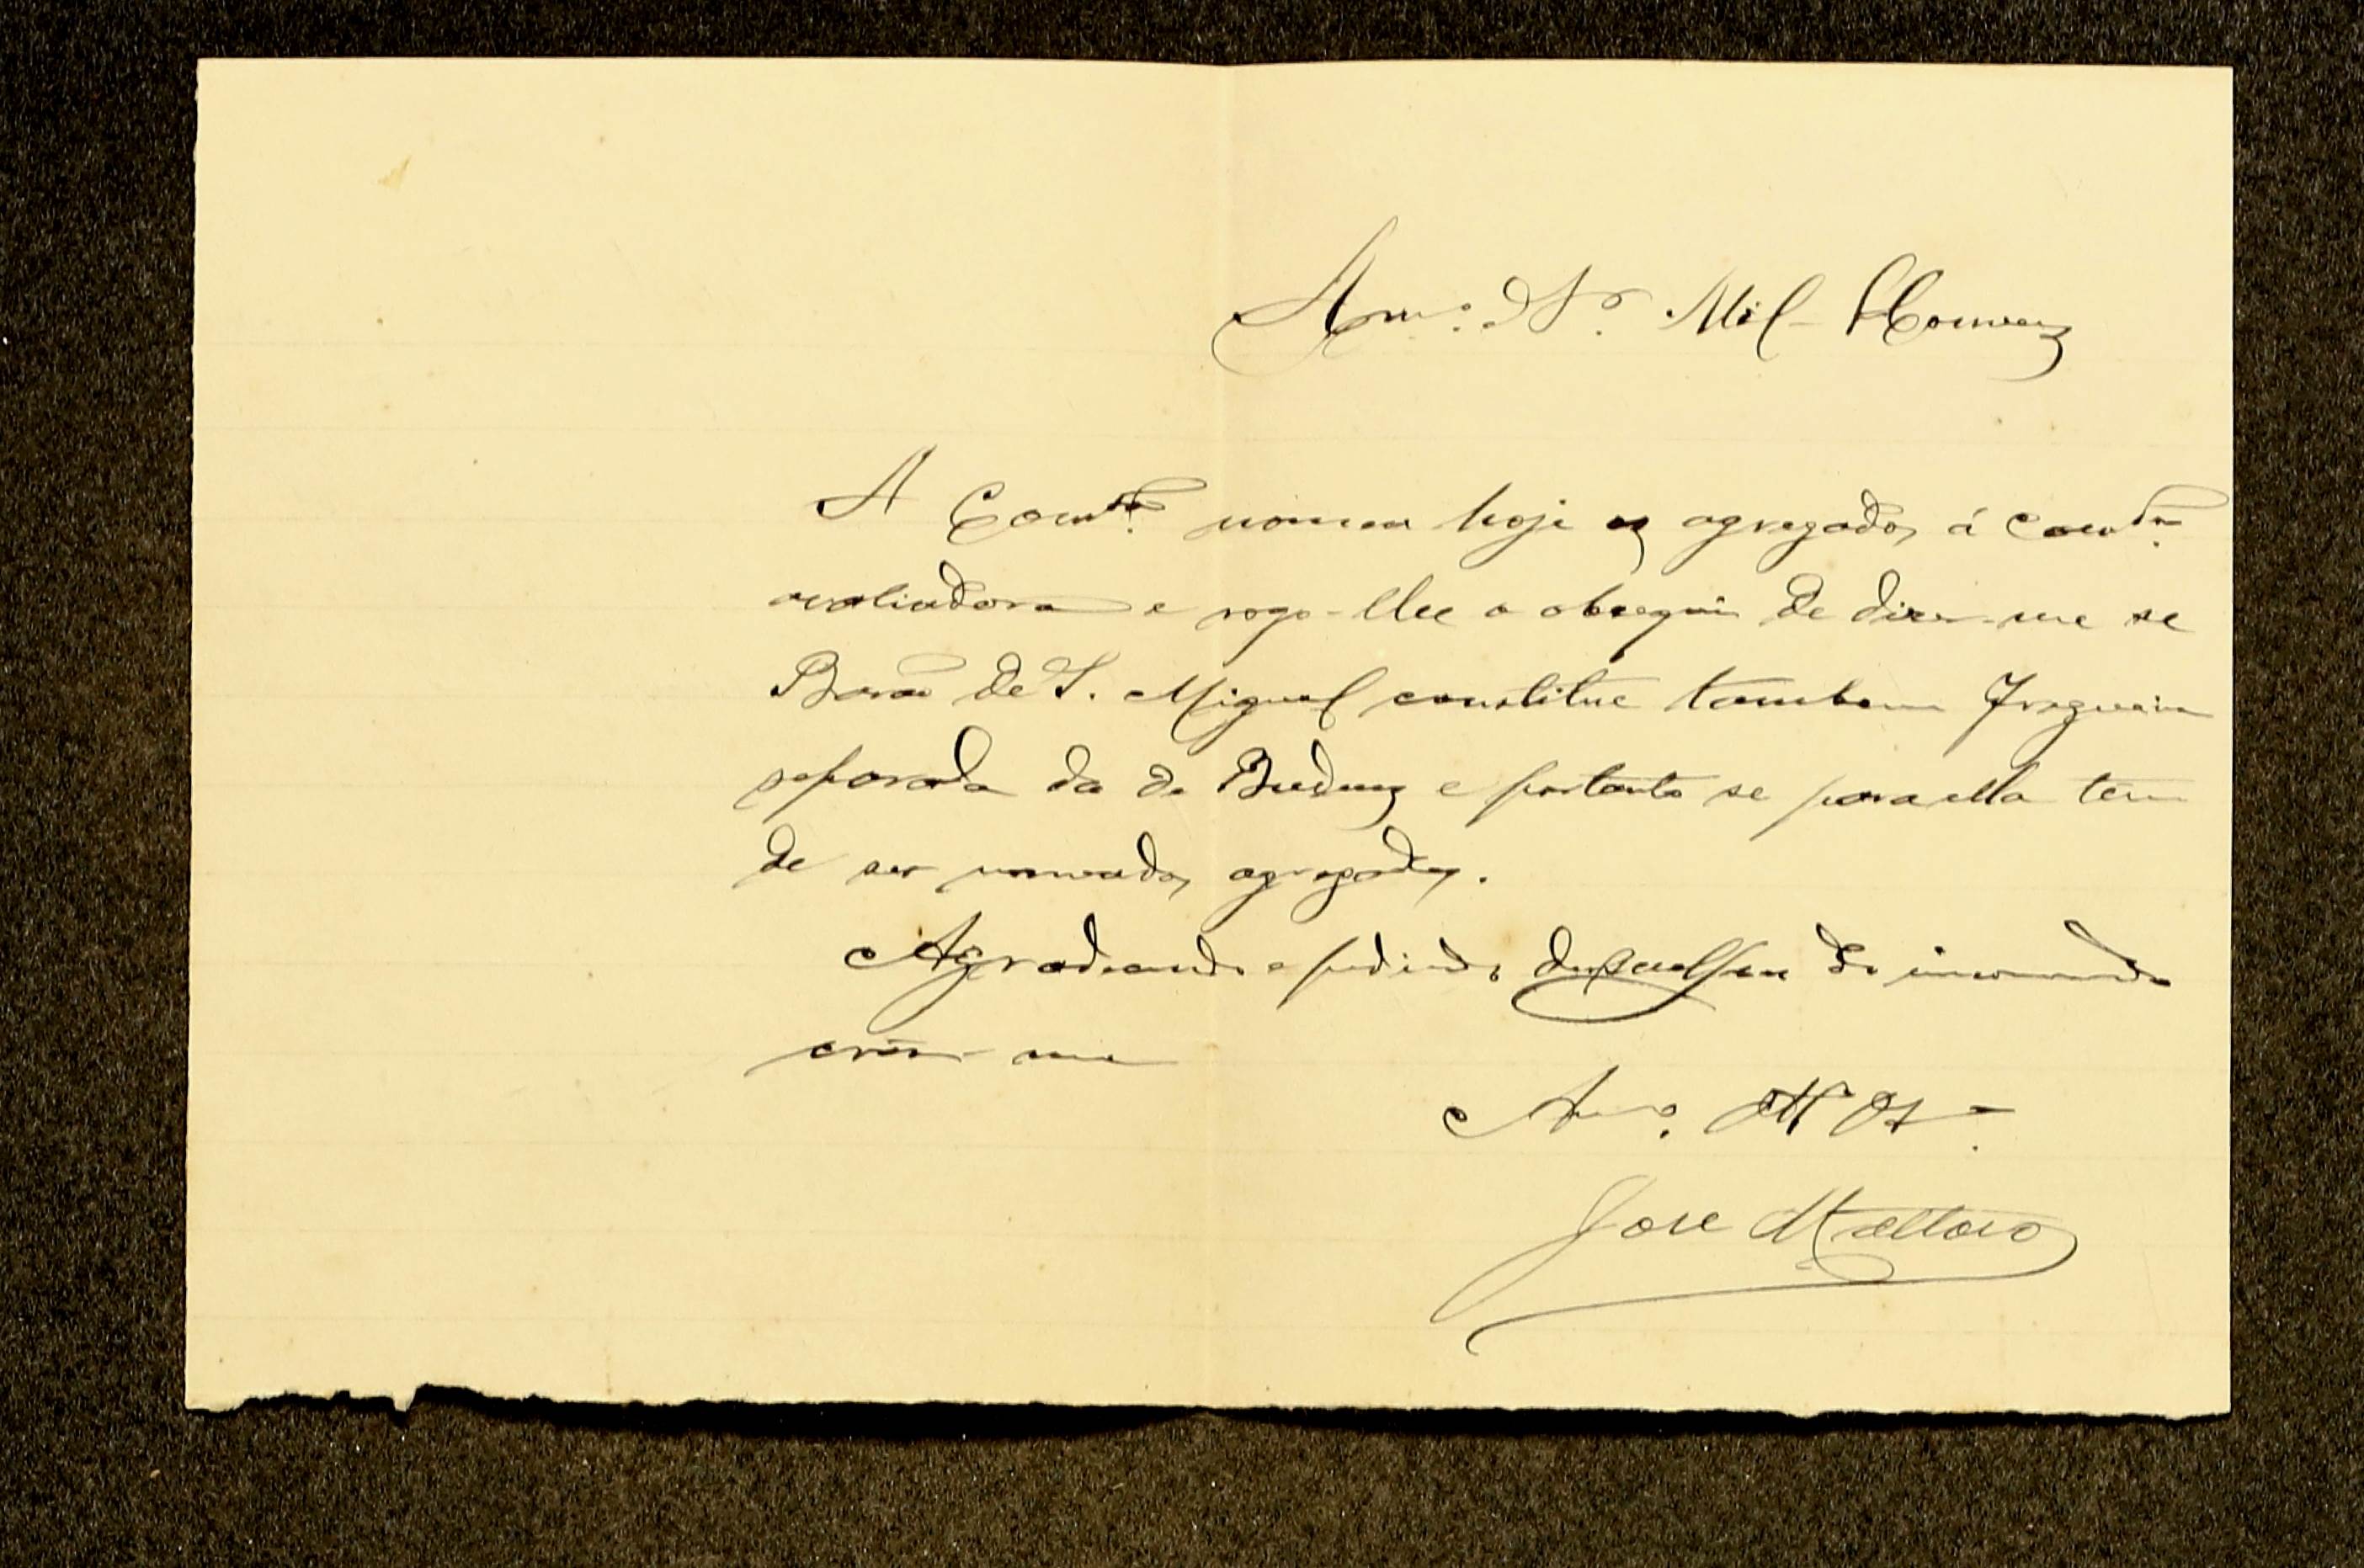 Amº. Sr. Mil-Homens
A Comm. nomeia hoje os agregados á Comm.
avaliadora e rogo-lhe o obsequio de dizer-me se
Barão de S. Miguel constitue tambem freguezia
separada da de Budens e portanto se para ella tem
de ser nomeados agregados.
Agradecendo e pedindo desculpa do incommodo
crêr-me
Amº.
José Mattoso